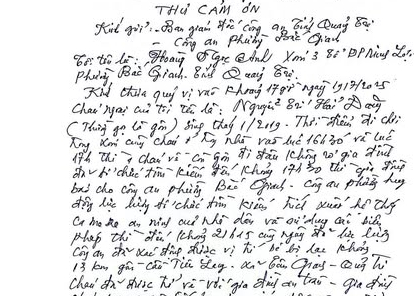 THƯ CẢM ƠN
Kính gửi: - Ban giám đốc công an Tỉnh Quảng Trị
- Công an Phường Bắc Gianh
Tôi tên là: Hoàng Ngọc Anh Xóm 3
Phường Bắc Gianh - Tỉnh Quảng Trị.
Kính thưa quý vị vào khoảng 17h ngày 19/7/2025
Cháu ngoại của tôi tên là: Nguyễn Hải Đăng
(Thường gọi là gôn) Sinh tháng 1/2019. Thời điểm đi chơi
hàng xóm cùng cháu ở nhà vào lúc 16h30 và lúc
17h thì cháu và Con đi đâu không rõ gia đình
đã tổ chức tìm kiếm đến khoảng 17h30 thì gia đình
báo cho công an phường Bắc Gianh - Công an phường huy
động lực lượng tổ chức tìm kiếm trích xuất hệ thống
Camera an ninh của nhà dân và sử dụng các biện
pháp thì đến khoảng 21h45 cùng ngày đã lực lượng
Công an đã xác định được vị trí bé bị lạc khoảng
13 km gần cầu xã - Quảng Trị
Cháu đã được trở về với gia đình an toàn - gia đình